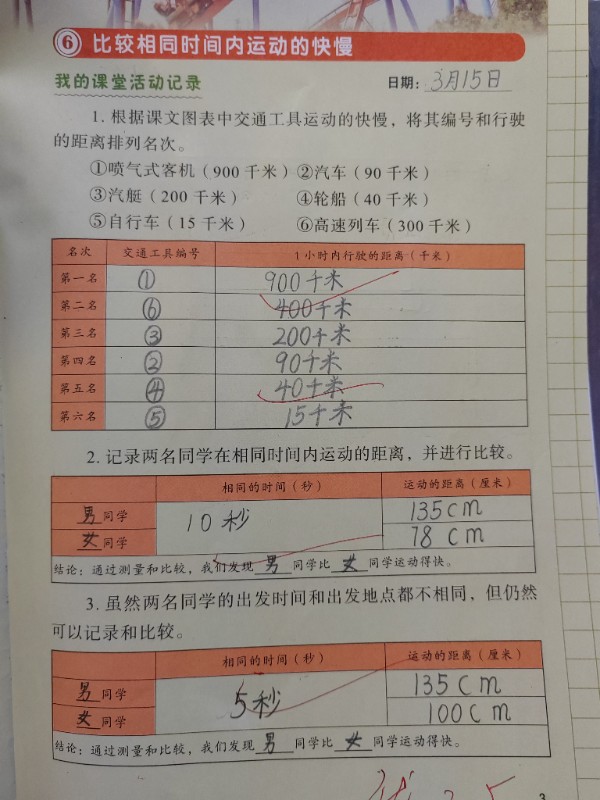 6 比较相同时间内运动的快慢
我的课堂活动记录 日期：3月15日
1. 根据课文图表中交通工具运动的快慢，将其编号和行驶
的距离排列名次。
①喷气式客机（900千米）②汽车（90千米）
③汽艇（200千米） ④轮船（40千米）
⑤自行车（15千米） ⑥高速列车（300千米）
名次 交通工具编号 1小时内行驶的距离（千米）
第一名 ① 900千米
第二名 ⑥ 400千米
第三名 ③ 200千米
第四名 ② 90千米
第五名 ④ 40千米
第六名 ⑤ 15千米
2. 记录两名同学在相同时间内运动的距离，并进行比较。
相同的时间（秒） 运动的距离（厘米）
男同学 10秒 135cm
女同学 78cm
结论：通过测量和比较，我们发现男同学比女同学运动得快。
3. 虽然两名同学的出发时间和出发地点都不相同，但仍然
可以记录和比较。
相同的时间（秒） 运动的距离（厘米）
男同学 5秒 135cm
女同学 100cm
结论：通过测量和比较，我们发现男同学比女同学运动得快。
3